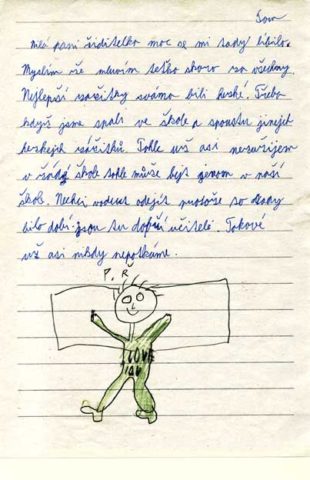 Tom
milá paní řiditelko moc se mi tady líbilo.
Myslím že mluvím teťko skoro za všechny.
Nejlepší zážitky sváma bili heské. Třeba
když jsme spali ve škole a spoustu jinejch
heskejch zážitků. Tohle už asi nezažijem
v žádný škole tohle může bejt jenom v naší
škole. Nechci vodcuď odejít protože to tady
bilo dobrí jsou tu dopří učitelé. Takové
už asi nikdy nepotkáme.
P. R
I LOVE